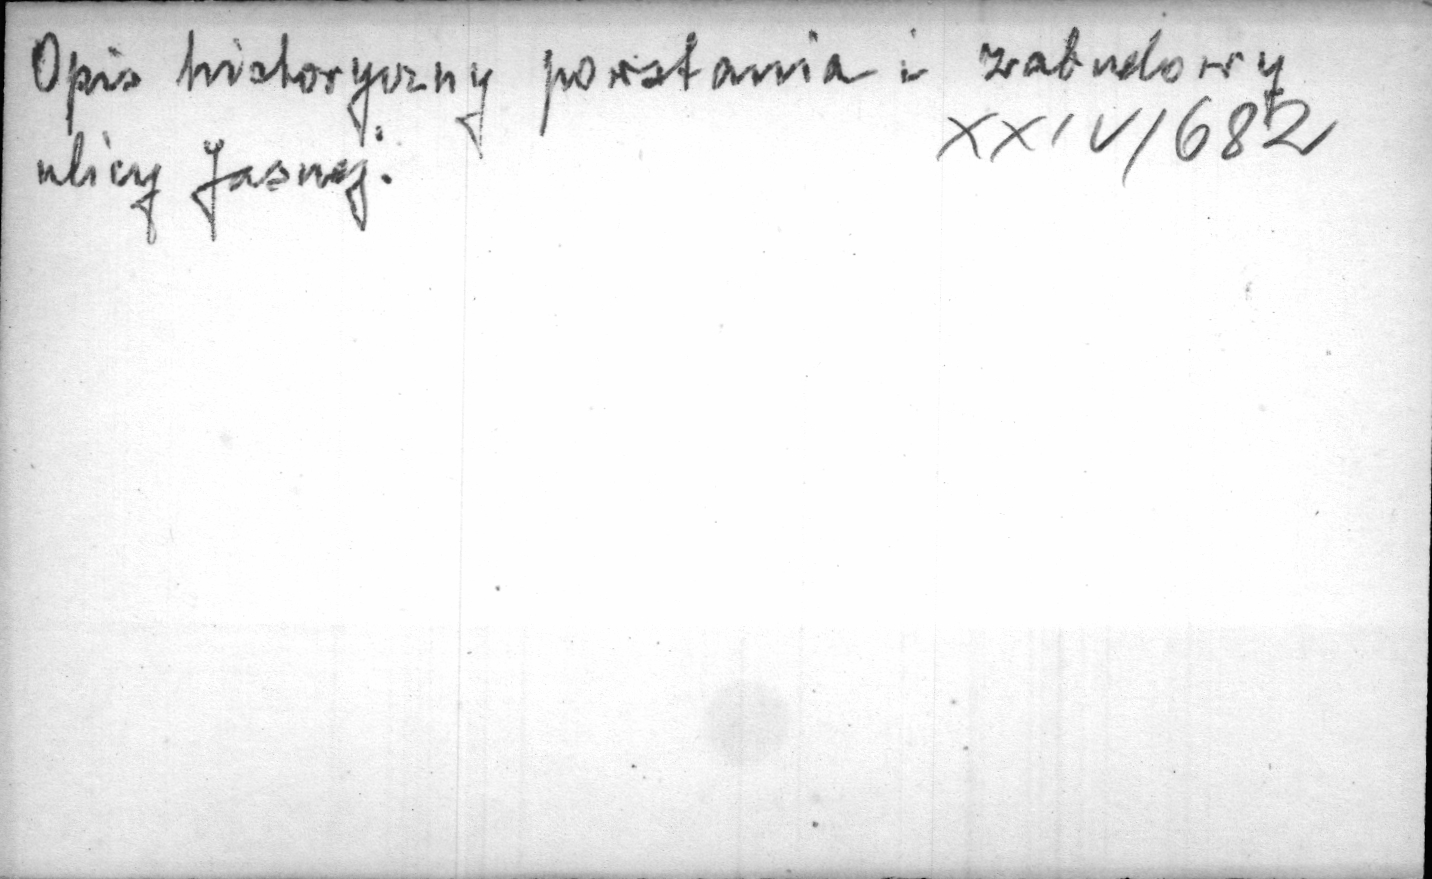 Opis historyczny powstania i zabudowy
XXIV/682
ulicy Jasnej.